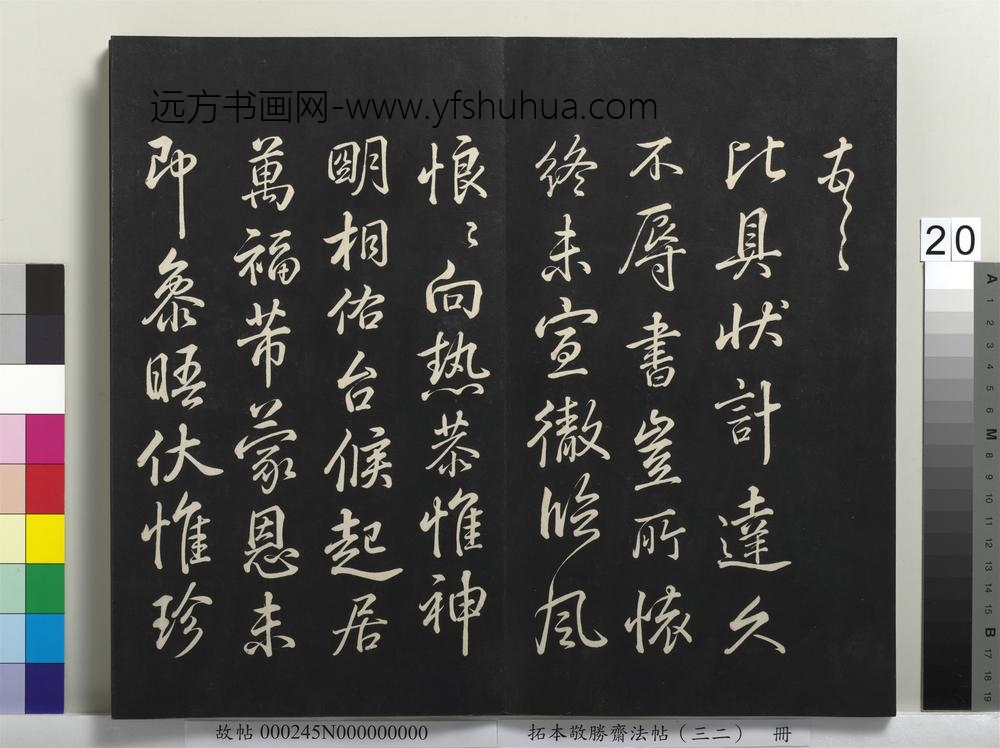 远方书画网-www.yfshuhua.com
比具状計達久
不辱書豈所懐
終未宣徹臨風
悢〻向熱恭惟神
明相佑台候起居
萬福芾蒙恩未
即叅晤伏惟珍
20
故帖 000245N000000000
拓本敬勝齋法帖（三二） 冊
A 1 2 3 4 5 6 M 8 9 10 11 12 13 14 15 B 17 18 19